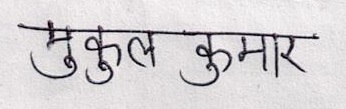 मुकुल कुमार